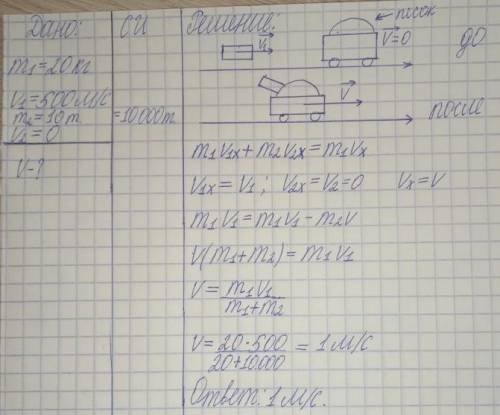 Дано:
m₁=20кг
V₁=500м/с
m₂=10т
V₂=0
V-?
СИ
=10000т
Решение:
песок
V₁
V=0
до
V
после
m₁V₁ₓ+m₂V₂ₓ=m₁Vₓ
V₁ₓ=V₁; V₂ₓ=V₂=0 Vₓ=V
m₁V₁=m₁V₁-m₂V
V(m₁+m₂)=m₁V₁
V=m₁V₁/m₁+m₂
V=20·500/20+10.000=1м/с
Ответ: 1м/с.